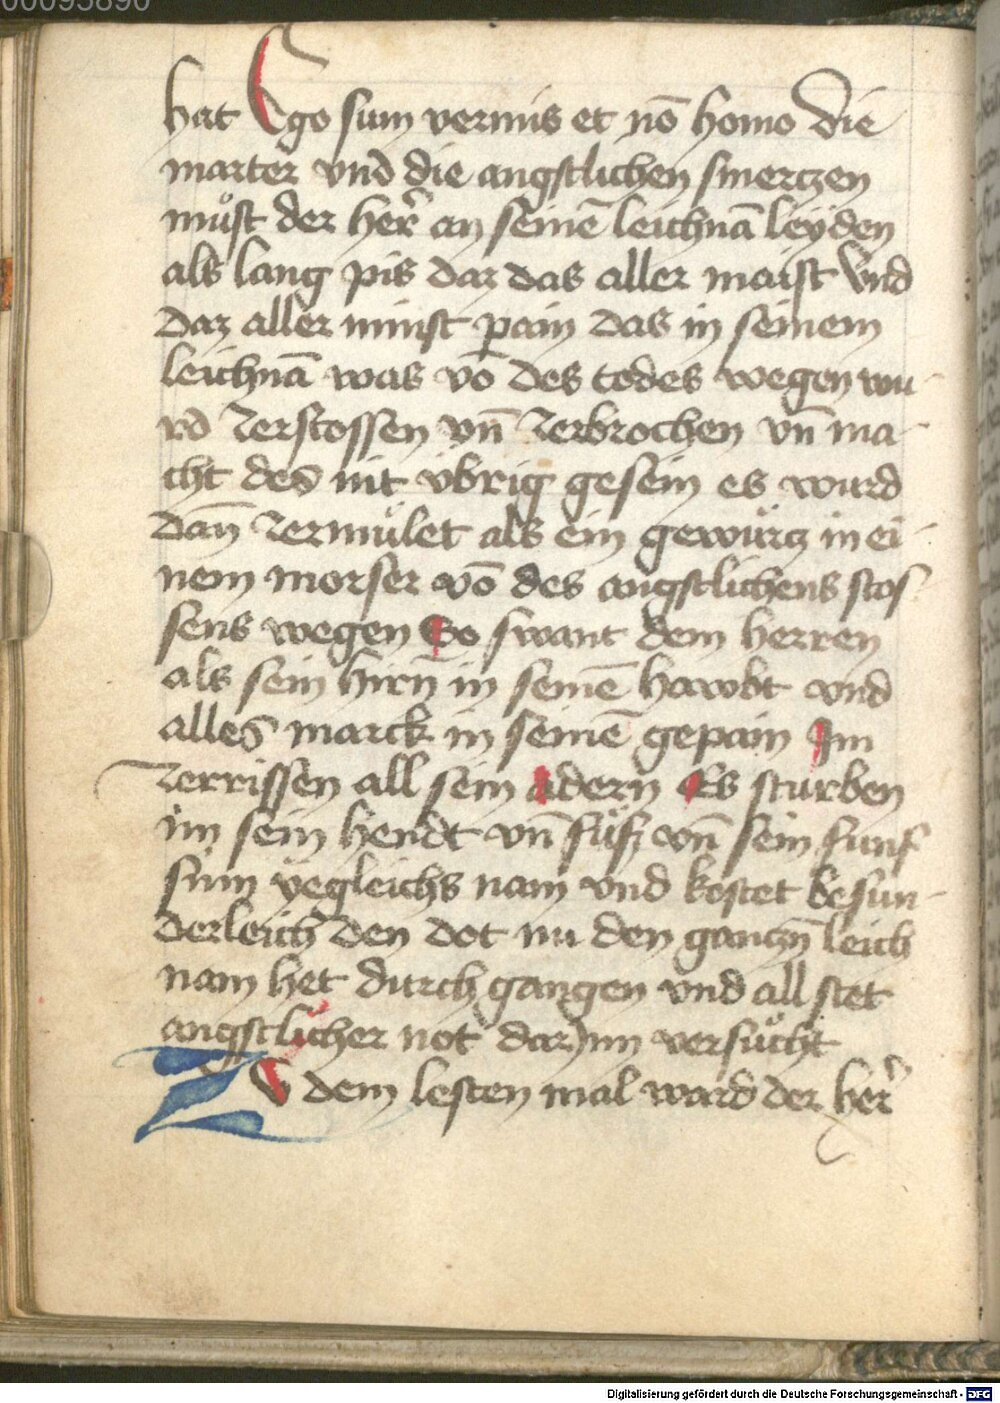 00095890
hat Ego sum vermis et nō homo die
marter vnd die angstlichen smertzen
muͦst der her̄ an seinē leichnā leyden
als lang pis daz das aller maist vnd
daz aller minst pain das in seinem
leichnā was vō des todes wegen wu-
rd zerstossen vn̄ zerbrochen vn̄ ma-
cht des nit vbrig gesein es wurd
dan̄ zermuͤlet als ein gewuͤrcz in ei-
nem morser vō des angstlichens stos-
sens wegen So swant dem herren
als sein hirn̄ in seinē hawbt vnd
alles marck in seinē gepain Im
zerrissen all sein adern Es sturben
im sein hendt vn̄ fuͤß vn̄ sein funf
sinn yegleichs nam vnd kostet besun-
derleich den dot nu den gantzn̄ leich
nam het durch gangen vnd all stet
angstlicher not dar Inn versuͦcht
Zv dem lesten mal ward der her̄
Digitalisierung gefördert durch die Deutsche Forschungsgemeinschaft - DFG